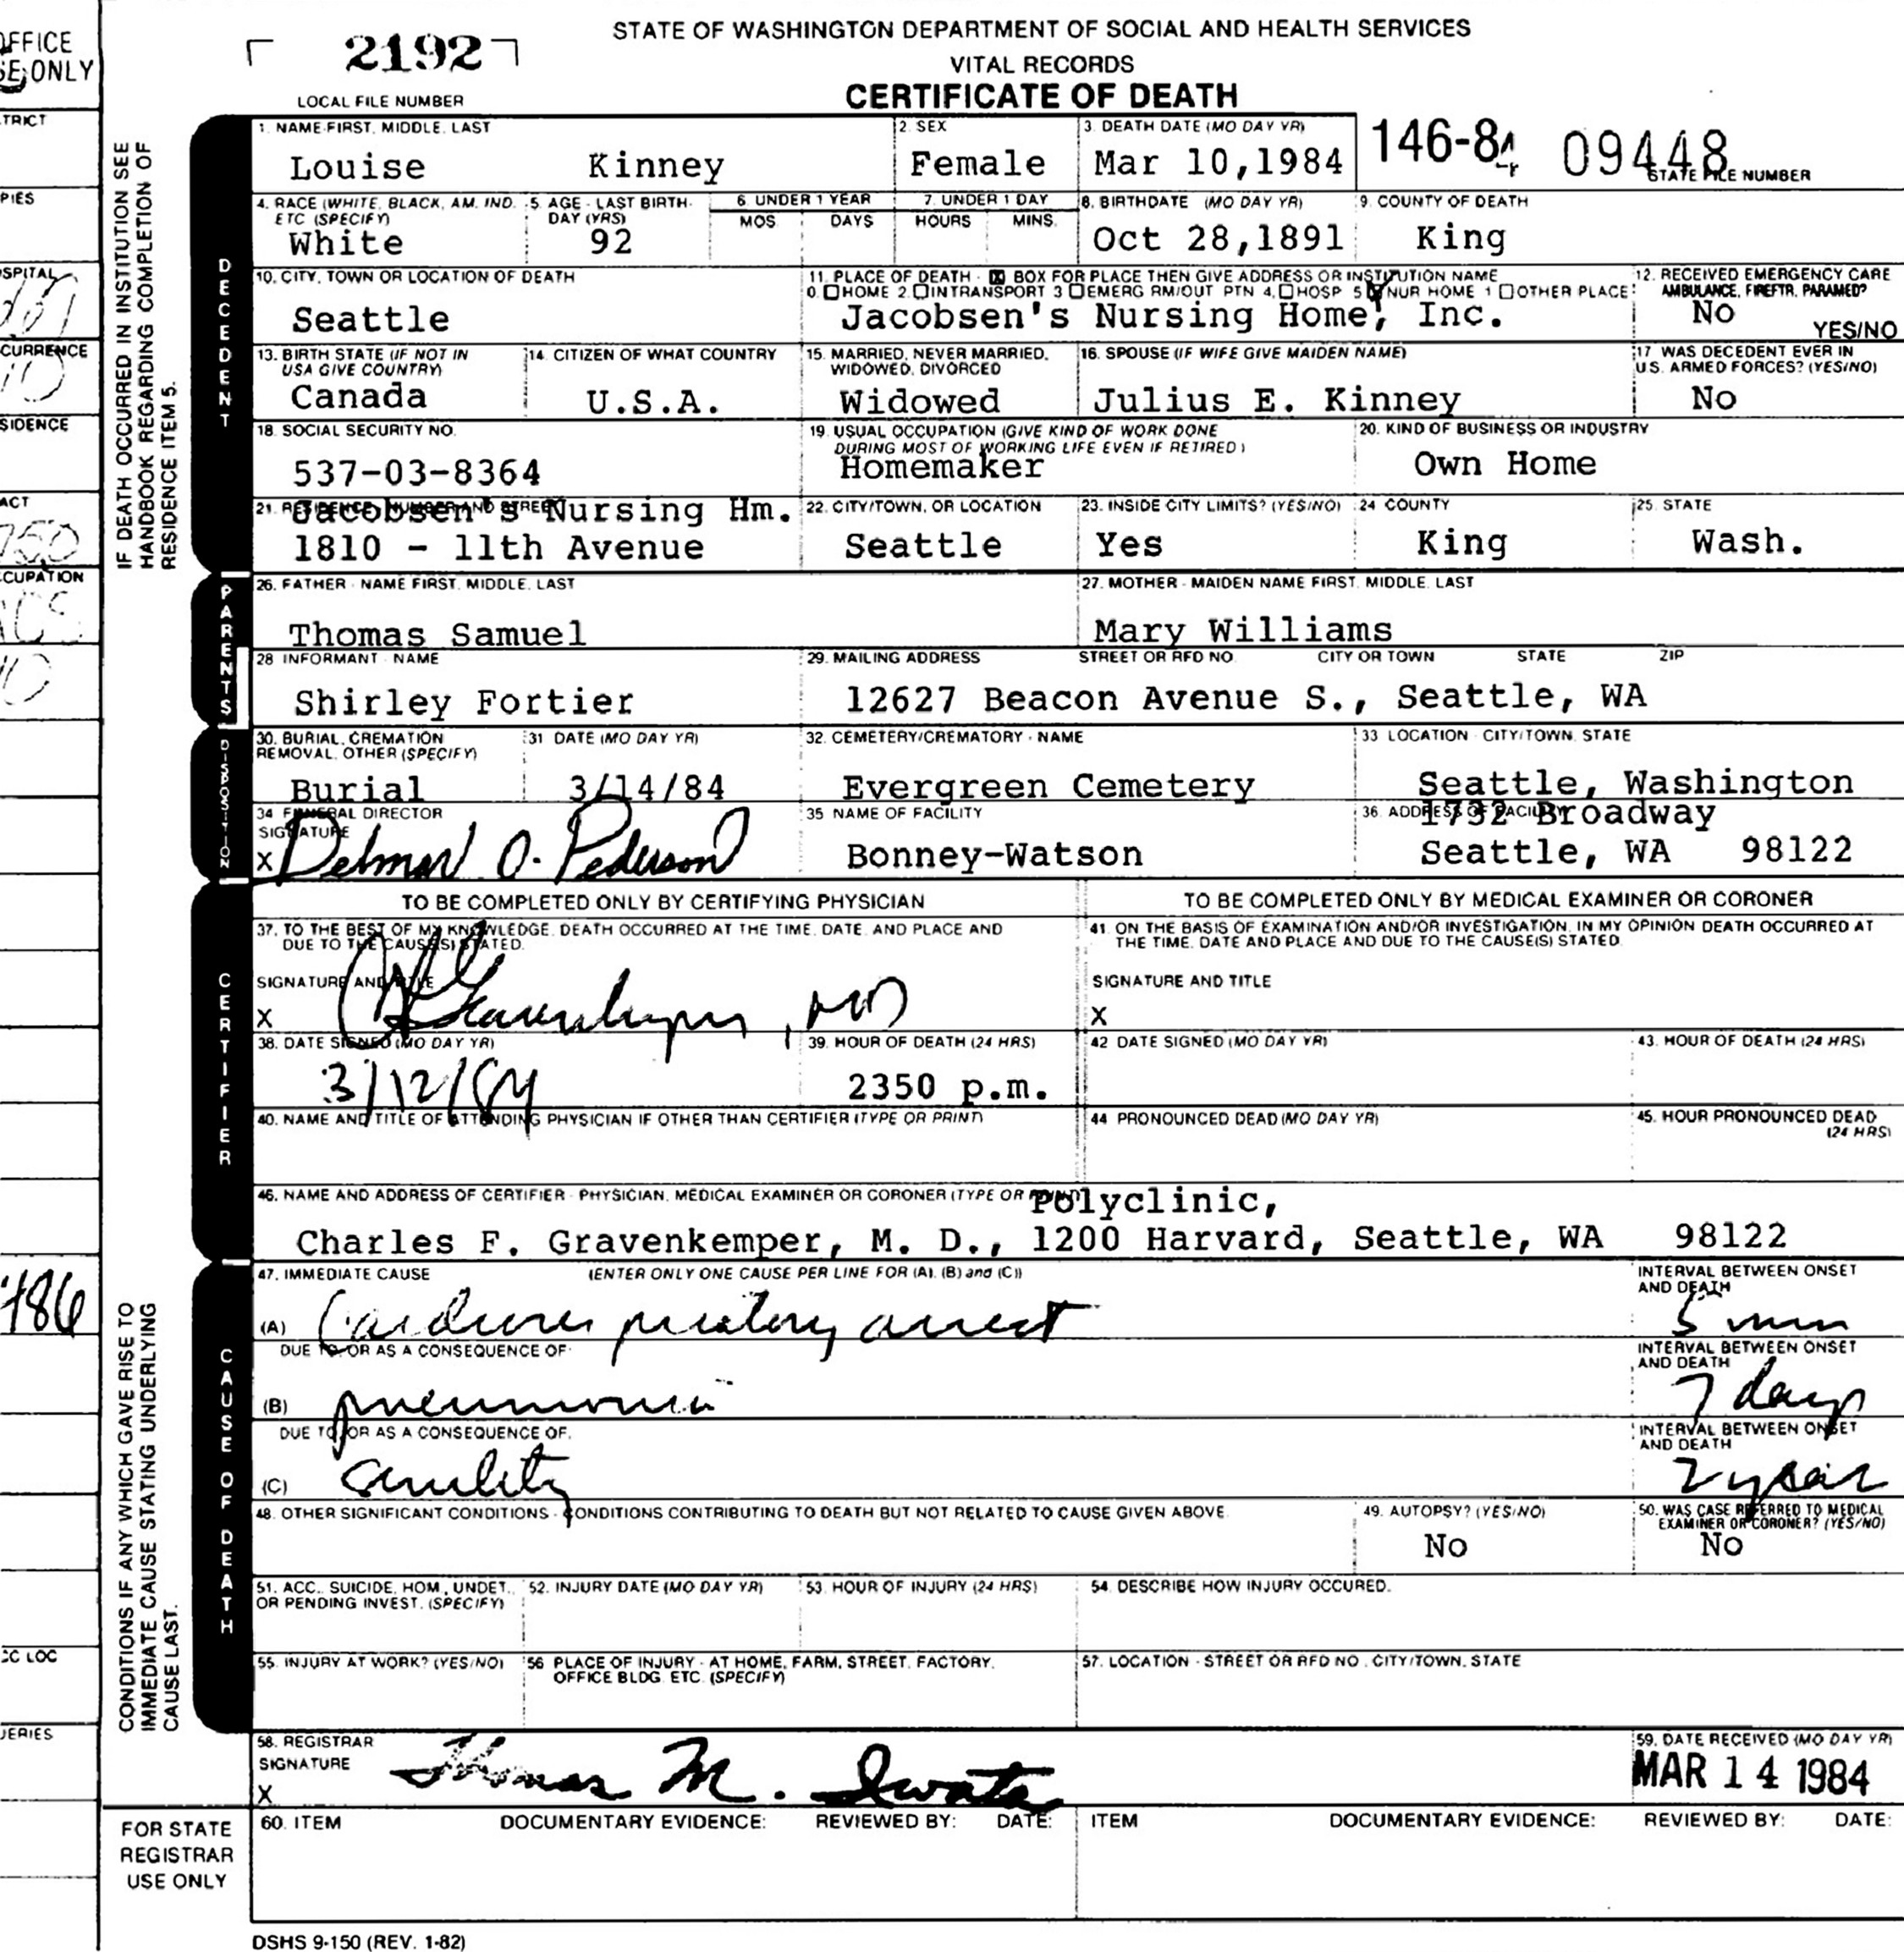 OFFICE
SE ONLY
STATE OF WASHINGTON DEPARTMENT OF SOCIAL AND HEALTH SERVICES
VITAL RECORDS
CERTIFICATE OF DEATH
2192
LOCAL FILE NUMBER
146-84 09448
STATE FILE NUMBER
TRICT
PIES
SPITAL
CURRENCE
SIDENCE
ACT
750
CUPATION
IF DEATH OCCURRED IN INSTITUTION SEE
HANDBOOK REGARDING COMPLETION OF
RESIDENCE ITEM 5.
DECEDENT
1. NAME-FIRST, MIDDLE, LAST
Louise Kinney
2. SEX
Female
3. DEATH DATE (MO DAY YR)
Mar 10,1984
4. RACE (WHITE, BLACK, AM. IND.
ETC (SPECIFY)
White
5. AGE - LAST BIRTH-
DAY (YRS)
92
6. UNDER 1 YEAR
MOS. DAYS
7. UNDER 1 DAY
HOURS MINS.
8. BIRTHDATE (MO DAY YR)
Oct 28,1891
9. COUNTY OF DEATH
King
10. CITY, TOWN OR LOCATION OF DEATH
Seattle
11. PLACE OF DEATH - ☒ BOX FOR PLACE THEN GIVE ADDRESS OR INSTITUTION NAME
0. ☐ HOME 2. ☐ INTRANSPORT 3 ☐ EMERG RM/OUT PTN 4. ☐ HOSP 5 ☒ NUR HOME 1 ☐ OTHER PLACE
Jacobsen's Nursing Home, Inc.
12. RECEIVED EMERGENCY CARE
AMBULANCE, FIREFTR, PARAMED?
No
YES/NO
13. BIRTH STATE (IF NOT IN
USA GIVE COUNTRY)
Canada
14. CITIZEN OF WHAT COUNTRY
U.S.A.
15. MARRIED, NEVER MARRIED,
WIDOWED, DIVORCED
Widowed
16. SPOUSE (IF WIFE GIVE MAIDEN NAME)
Julius E. Kinney
17 WAS DECEDENT EVER IN
U.S. ARMED FORCES? (YES/NO)
No
18. SOCIAL SECURITY NO.
537-03-8364
19. USUAL OCCUPATION (GIVE KIND OF WORK DONE
DURING MOST OF WORKING LIFE EVEN IF RETIRED)
Homemaker
20. KIND OF BUSINESS OR INDUSTRY
Own Home
21. RESIDENCE - NUMBER AND STREET
Jacobsen's Nursing Hm.
1810 - 11th Avenue
22. CITY/TOWN, OR LOCATION
Seattle
23. INSIDE CITY LIMITS? (YES/NO)
Yes
24 COUNTY
King
25. STATE
Wash.
PARENTS
26. FATHER - NAME FIRST, MIDDLE, LAST
Thomas Samuel
27. MOTHER - MAIDEN NAME FIRST, MIDDLE, LAST
Mary Williams
28 INFORMANT - NAME
Shirley Fortier
29. MAILING ADDRESS STREET OR RFD NO. CITY OR TOWN STATE ZIP
12627 Beacon Avenue S., Seattle, WA
DISPOSITION
30. BURIAL, CREMATION
REMOVAL, OTHER (SPECIFY)
Burial
31 DATE (MO DAY YR)
3/14/84
32. CEMETERY/CREMATORY - NAME
Evergreen Cemetery
33 LOCATION - CITY/TOWN, STATE
Seattle, Washington
34 FUNERAL DIRECTOR
SIGNATURE
X Delmar O. Pederson
35 NAME OF FACILITY
Bonney-Watson
36. ADDRESS OF FACILITY
1732 Broadway
Seattle, WA 98122
CERTIFIER
TO BE COMPLETED ONLY BY CERTIFYING PHYSICIAN
37. TO THE BEST OF MY KNOWLEDGE, DEATH OCCURRED AT THE TIME, DATE, AND PLACE AND
DUE TO THE CAUSE(S) STATED.
SIGNATURE AND TITLE
X Gravenkemper, MD
38. DATE SIGNED (MO DAY YR)
3/12/84
39. HOUR OF DEATH (24 HRS)
2350 p.m.
40. NAME AND TITLE OF ATTENDING PHYSICIAN IF OTHER THAN CERTIFIER (TYPE OR PRINT)
TO BE COMPLETED ONLY BY MEDICAL EXAMINER OR CORONER
41. ON THE BASIS OF EXAMINATION AND/OR INVESTIGATION, IN MY OPINION DEATH OCCURRED AT
THE TIME, DATE AND PLACE AND DUE TO THE CAUSE(S) STATED.
SIGNATURE AND TITLE
X
42 DATE SIGNED (MO DAY YR)
43. HOUR OF DEATH (24 HRS)
44 PRONOUNCED DEAD (MO DAY YR)
45. HOUR PRONOUNCED DEAD
(24 HRS)
46. NAME AND ADDRESS OF CERTIFIER - PHYSICIAN, MEDICAL EXAMINER OR CORONER (TYPE OR PRINT)
Polyclinic,
Charles F. Gravenkemper, M. D., 1200 Harvard, Seattle, WA 98122
486
CONDITIONS IF ANY WHICH GAVE RISE TO
IMMEDIATE CAUSE STATING UNDERLYING
CAUSE LAST.
CAUSE OF DEATH
47. IMMEDIATE CAUSE (ENTER ONLY ONE CAUSE PER LINE FOR (A), (B) and (C))
(A) Cardiorespiratory arrest
INTERVAL BETWEEN ONSET
AND DEATH
5 min
DUE TO, OR AS A CONSEQUENCE OF:
(B) pneumonia
INTERVAL BETWEEN ONSET
AND DEATH
7 days
DUE TO, OR AS A CONSEQUENCE OF.
(C) senility
INTERVAL BETWEEN ONSET
AND DEATH
2 year
48. OTHER SIGNIFICANT CONDITIONS - CONDITIONS CONTRIBUTING TO DEATH BUT NOT RELATED TO CAUSE GIVEN ABOVE.
49. AUTOPSY? (YES/NO)
No
50. WAS CASE REFERRED TO MEDICAL
EXAMINER OR CORONER? (YES/NO)
No
51. ACC., SUICIDE, HOM., UNDET.,
OR PENDING INVEST. (SPECIFY)
52. INJURY DATE (MO DAY YR)
53. HOUR OF INJURY (24 HRS)
54. DESCRIBE HOW INJURY OCCURED.
CC LOC
55. INJURY AT WORK? (YES/NO)
56 PLACE OF INJURY - AT HOME, FARM, STREET, FACTORY,
OFFICE BLDG. ETC. (SPECIFY)
57. LOCATION - STREET OR RFD NO., CITY/TOWN, STATE
UERIES
58. REGISTRAR
SIGNATURE
X Thomas M. Iwata
59. DATE RECEIVED (MO DAY YR)
MAR 14 1984
FOR STATE
REGISTRAR
USE ONLY
60. ITEM DOCUMENTARY EVIDENCE: REVIEWED BY: DATE:
ITEM DOCUMENTARY EVIDENCE: REVIEWED BY: DATE:
DSHS 9-150 (REV. 1-82)